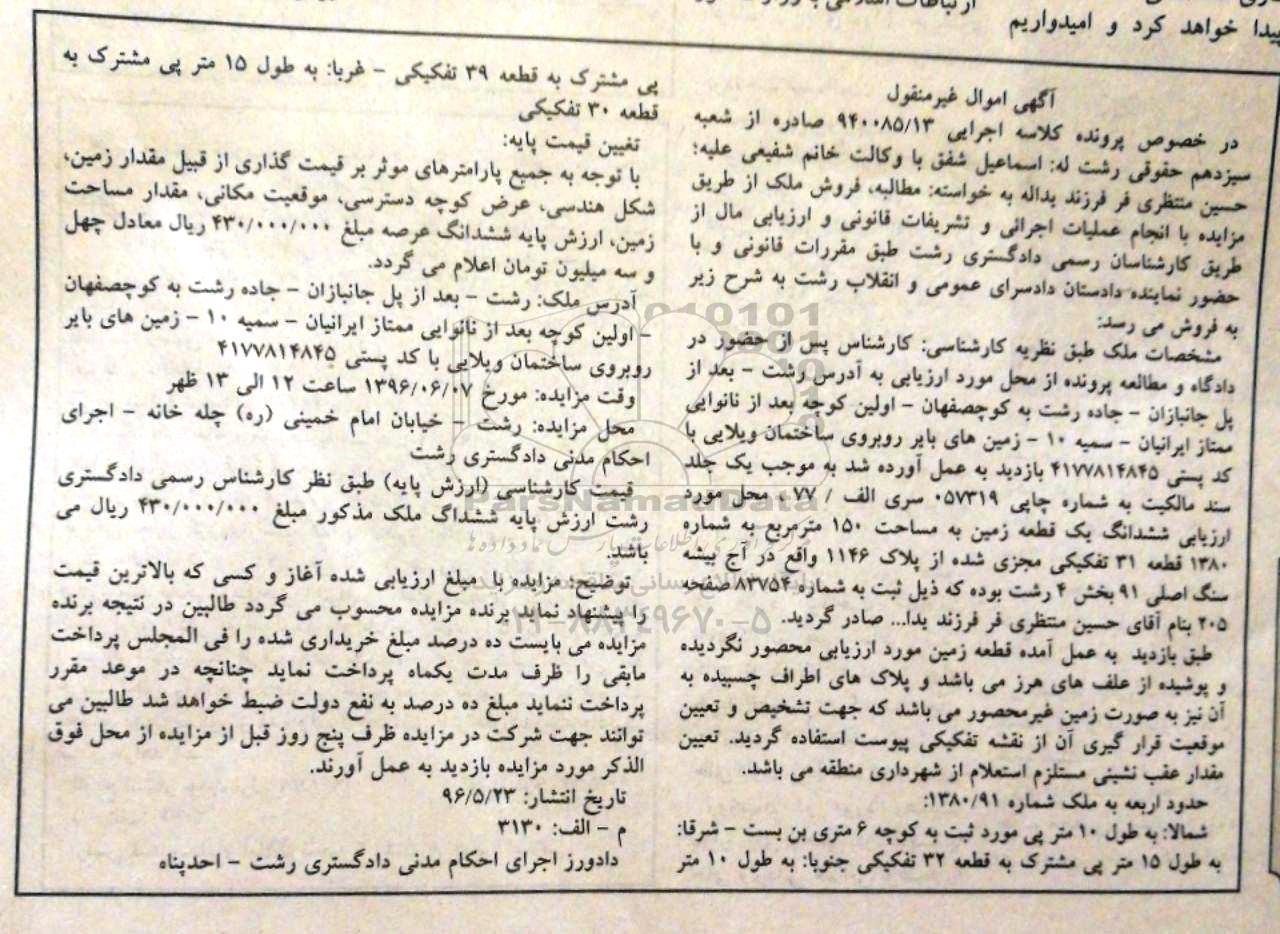 پیدا خواهد کرد و امیدواریم
آگهی اموال غیرمنقول
در خصوص پرونده کلاسه اجرایی ۹۴۰۰۸۵/۱۳ صادره از شعبه
سیزدهم حقوقی رشت له: اسماعیل شفق با وکالت خانم شفیعی علیه:
حسین منتظری فر فرزند یداله به خواسته: مطالبه، فروش ملک از طریق
مزایده با انجام عملیات اجرائی و تشریفات قانونی و ارزیابی مال از
طریق کارشناسان رسمی دادگستری رشت طبق مقررات قانونی و با
حضور نماینده دادستان دادسرای عمومی و انقلاب رشت به شرح زیر
به فروش می رسد:
مشخصات ملک طبق نظریه کارشناسی: کارشناس پس از حضور در
دادگاه و مطالعه پرونده از محل مورد ارزیابی به آدرس رشت - بعد از
پل جانبازان - جاده رشت به کوچصفهان - اولین کوچه بعد از نانوایی
ممتاز ایرانیان - سمیه ۱۰ - زمین های بایر روبروی ساختمان ویلایی با
کد پستی ۴۱۷۷۸۱۴۸۴۵ بازدید به عمل آورده شد به موجب یک جلد
سند مالکیت به شماره چاپی ۰۵۷۳۱۹ سری الف / ۷۷ ، محل مورد
ارزیابی ششدانگ یک قطعه زمین به مساحت ۱۵۰ مترمربع به شماره
۱۳۸۰ قطعه ۳۱ تفکیکی مجزی شده از پلاک ۱۱۴۶ واقع در آج بیشه
سنگ اصلی ۹۱ بخش ۴ رشت بوده که ذیل ثبت به شماره ۸۳۷۵۴ صفحه
۲۰۵ بنام آقای حسین منتظری فر فرزند یدا... صادر گردید.
طبق بازدید به عمل آمده قطعه زمین مورد ارزیابی محصور نگردیده
و پوشیده از علف های هرز می باشد و پلاک های اطراف چسبیده به
آن نیز به صورت زمین غیرمحصور می باشد که جهت تشخیص و تعیین
موقعیت قرار گیری آن از نقشه تفکیکی پیوست استفاده گردید. تعیین
مقدار عقب نشینی مستلزم استعلام از شهرداری منطقه می باشد.
حدود اربعه به ملک شماره ۱۳۸۰/۹۱:
شمالا: به طول ۱۰ متر پی مورد ثبت به کوچه ۶ متری بن بست - شرقا:
به طول ۱۵ متر پی مشترک به قطعه ۳۲ تفکیکی جنوبا: به طول ۱۰ متر
پی مشترک به قطعه ۳۹ تفکیکی - غربا: به طول ۱۵ متر پی مشترک به
قطعه ۳۰ تفکیکی
تغیین قیمت پایه:
با توجه به جمیع پارامترهای موثر بر قیمت گذاری از قبیل مقدار زمین،
شکل هندسی، عرض کوچه دسترسی، موقعیت مکانی، مقدار مساحت
زمین، ارزش پایه ششدانگ عرصه مبلغ ۴۳۰/۰۰۰/۰۰۰ ریال معادل چهل
و سه میلیون تومان اعلام می گردد.
آدرس ملک: رشت - بعد از پل جانبازان - جاده رشت به کوچصفهان
- اولین کوچه بعد از نانوایی ممتاز ایرانیان - سمیه ۱۰ - زمین های بایر
روبروی ساختمان ویلایی با کد پستی ۴۱۷۷۸۱۴۸۴۵
وقت مزایده: مورخ ۱۳۹۶/۰۶/۰۷ ساعت ۱۲ الی ۱۳ ظهر
محل مزایده: رشت - خیابان امام خمینی (ره) چله خانه - اجرای
احکام مدنی دادگستری رشت
قیمت کارشناسی (ارزش پایه) طبق نظر کارشناس رسمی دادگستری
رشت ارزش پایه ششداگ ملک مذکور مبلغ ۴۳۰/۰۰۰/۰۰۰ ریال می
باشد.
توضیح: مزایده با مبلغ ارزیابی شده آغاز و کسی که بالاترین قیمت
را پیشنهاد نماید برنده مزایده محسوب می گردد طالبین در نتیجه برنده
مزایده می بایست ده درصد مبلغ خریداری شده را فی المجلس پرداخت
مابقی را ظرف مدت یکماه پرداخت نماید چنانچه در موعد مقرر
پرداخت ننماید مبلغ ده درصد به نفع دولت ضبط خواهد شد طالبین می
توانند جهت شرکت در مزایده ظرف پنج روز قبل از مزایده از محل فوق
الذکر مورد مزایده بازدید به عمل آورند.
تاریخ انتشار: ۹۶/۵/۲۳
م - الف: ۳۱۳۰
دادورز اجرای احکام مدنی دادگستری رشت - احدپناه
ParsNamadData